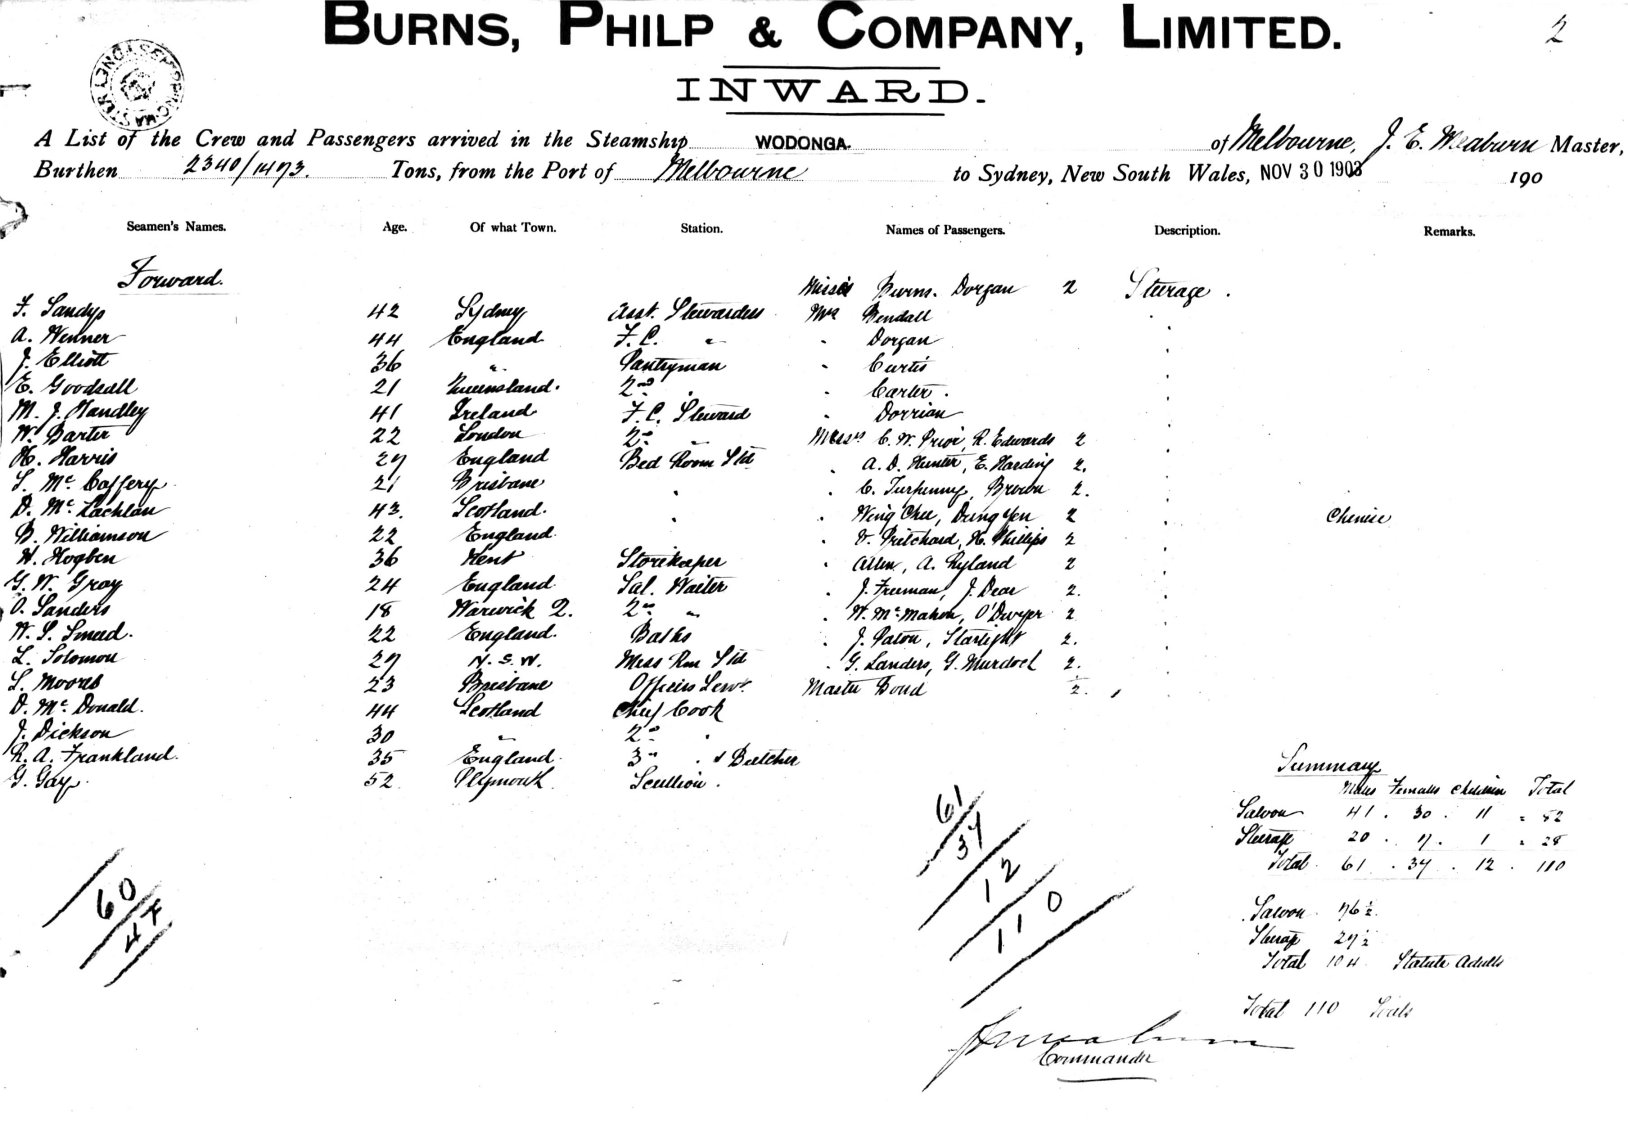 BURNS, PHILP & COMPANY, LIMITED. 2
INWARD.
A List of the Crew and Passengers arrived in the Steamship WODONGA. of Melbourne, J. E. Meaburn Master,
Burthen 2340/1473. Tons, from the Port of Melbourne to Sydney, New South Wales, NOV 30 1903 190
Seamen's Names. Age. Of what Town. Station. Names of Passengers. Description. Remarks.
Forward. Misses Burns. Dorgan 2 Steerage.
F. Sandys 42 Sydney Asst. Stewardess Mrs Bendall
A. Wenner 44 England F.C. " " Dorgan
J. Elliott 36 " Pantryman " Curtis
E. Goodsall 21 Queensland. 2nd " " Carter.
M. J. Handley 41 Ireland F.C. Steward " Dorrian
W. Barter 22 London 2nd " Messrs C. W. Prior, R. Edwards 2
H. Harris 27 England Bed Room Std " A. D. Hunter, E. Harding 2.
S. Mc Caffery 21 Brisbane " " C. Turpenny, Brown 2.
D. Mc Lachlan 43. Scotland. " " Wing Chee, Dung Yen 2 Chinese
B. Williamson 22 England. " V. Pritchard, H. Phillips 2
H. Hogben 36 Kent Storekeeper " Allen, A. Ryland 2
G. W. Gray 24 England Sal. Waiter " J. Freeman, J. Dear 2.
O. Sanders 18 Warwick Q. 2nd " " W. McMahon, O'Dwyer 2
W. S. Smeed. 22 England. Baths " J. Paton, Starlight 2.
L. Solomon 27 N.S.W. Mess Rm Std " G. Landers, G. Murdoch 2.
S. Moores 23 Brisbane Officers Servt. Master Bond ½.
D. Mc Donald. 44 Scotland Chief Cook
J. Dickson 30 " 2nd "
R. A. Frankland. 35 England. 3rd " & Butcher
G. Gay. 52 Plymouth Scullion.
Summary
Males Females Children Total
Saloon 41 . 30 . 11 = 82
Steerage 20 . 7 . 1 = 28
Total 61 . 37 . 12 . 110
61/37/12/110
60/47
Saloon 76½
Steerage 27½
Total 104 Statute Adults
Total 110 Souls
Commander